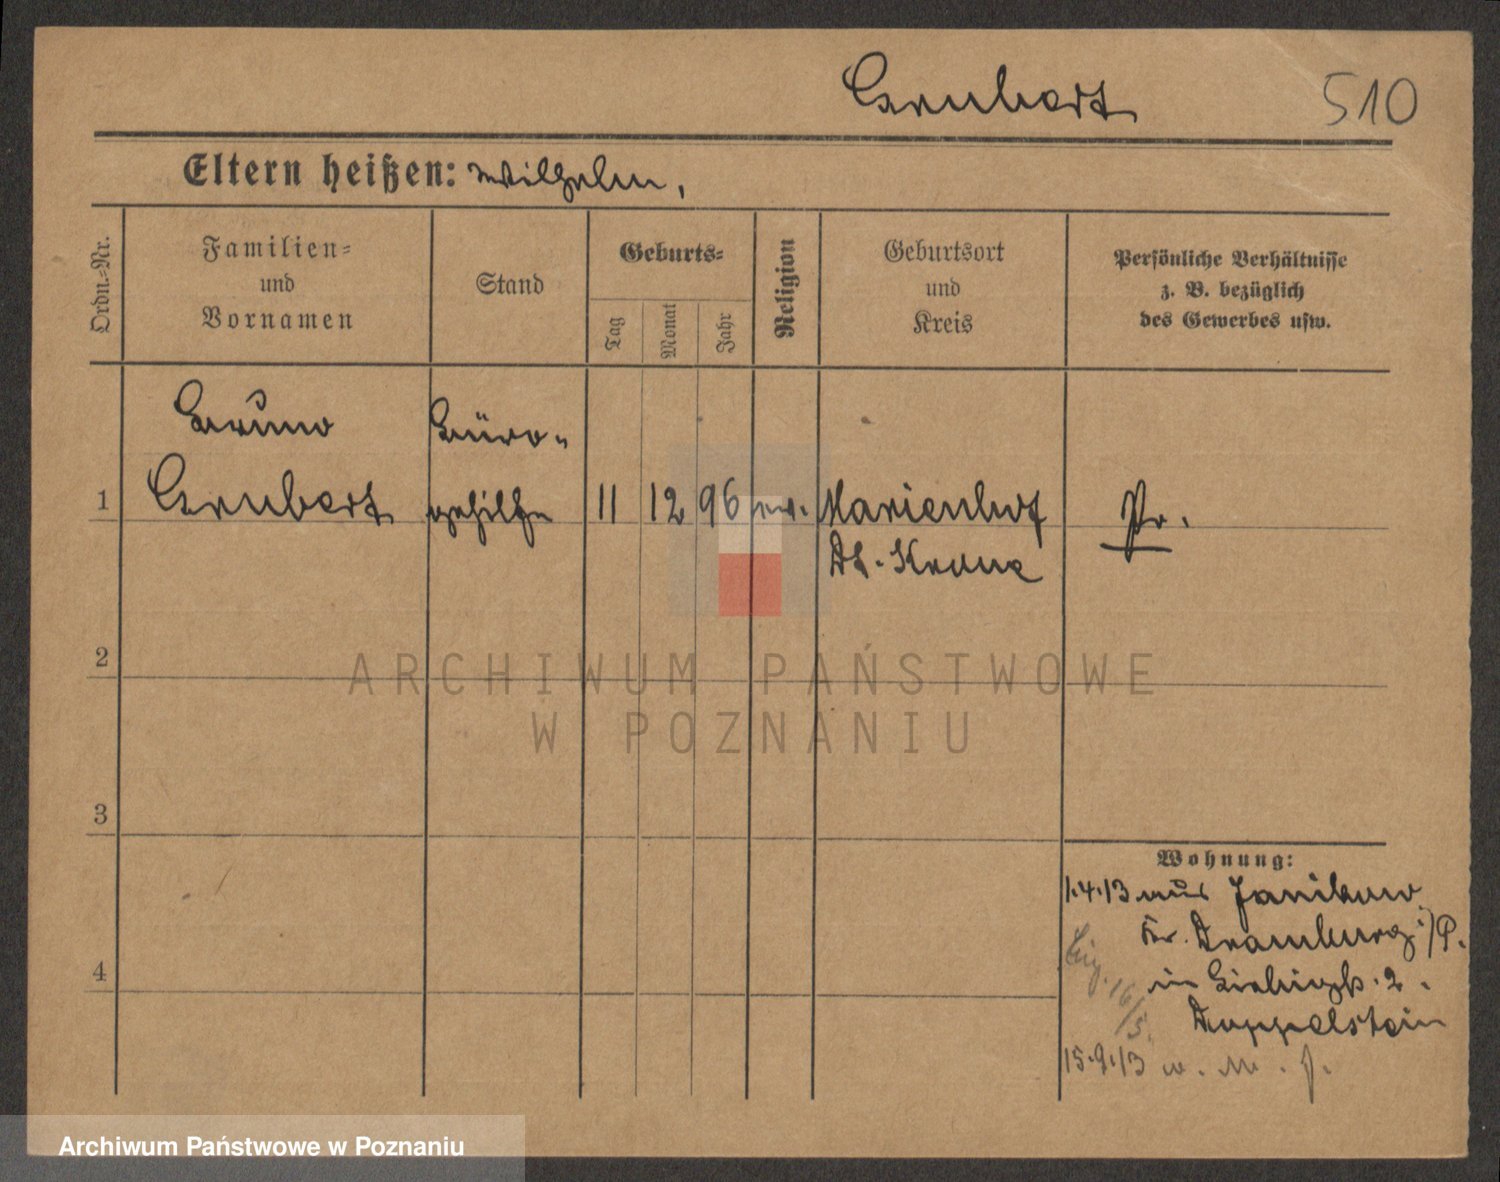 510
Eltern heißen: Wilhelm,
Ordn.-Nr.
Familien-
und
Vornamen
Stand
Geburts-
Tag
Monat
Jahr
Religion
Geburtsort
und
Kreis
Persönliche Verhältnisse
z. B. bezüglich
des Gewerbes usw.
Bruno
Büro-
1
gehilfe
11
12
96
ev.
Marienhof
Pr.
Dt. Krone
2
ARCHIWUM PAŃSTWOWE
W POZNANIU
3
Wohnung:
1.4.13 aus Janikow
Kr. Dramburg i/P.
in 2.
Doppelstein
4
16/5.
15.9.13
Archiwum Państwowe w Poznaniu